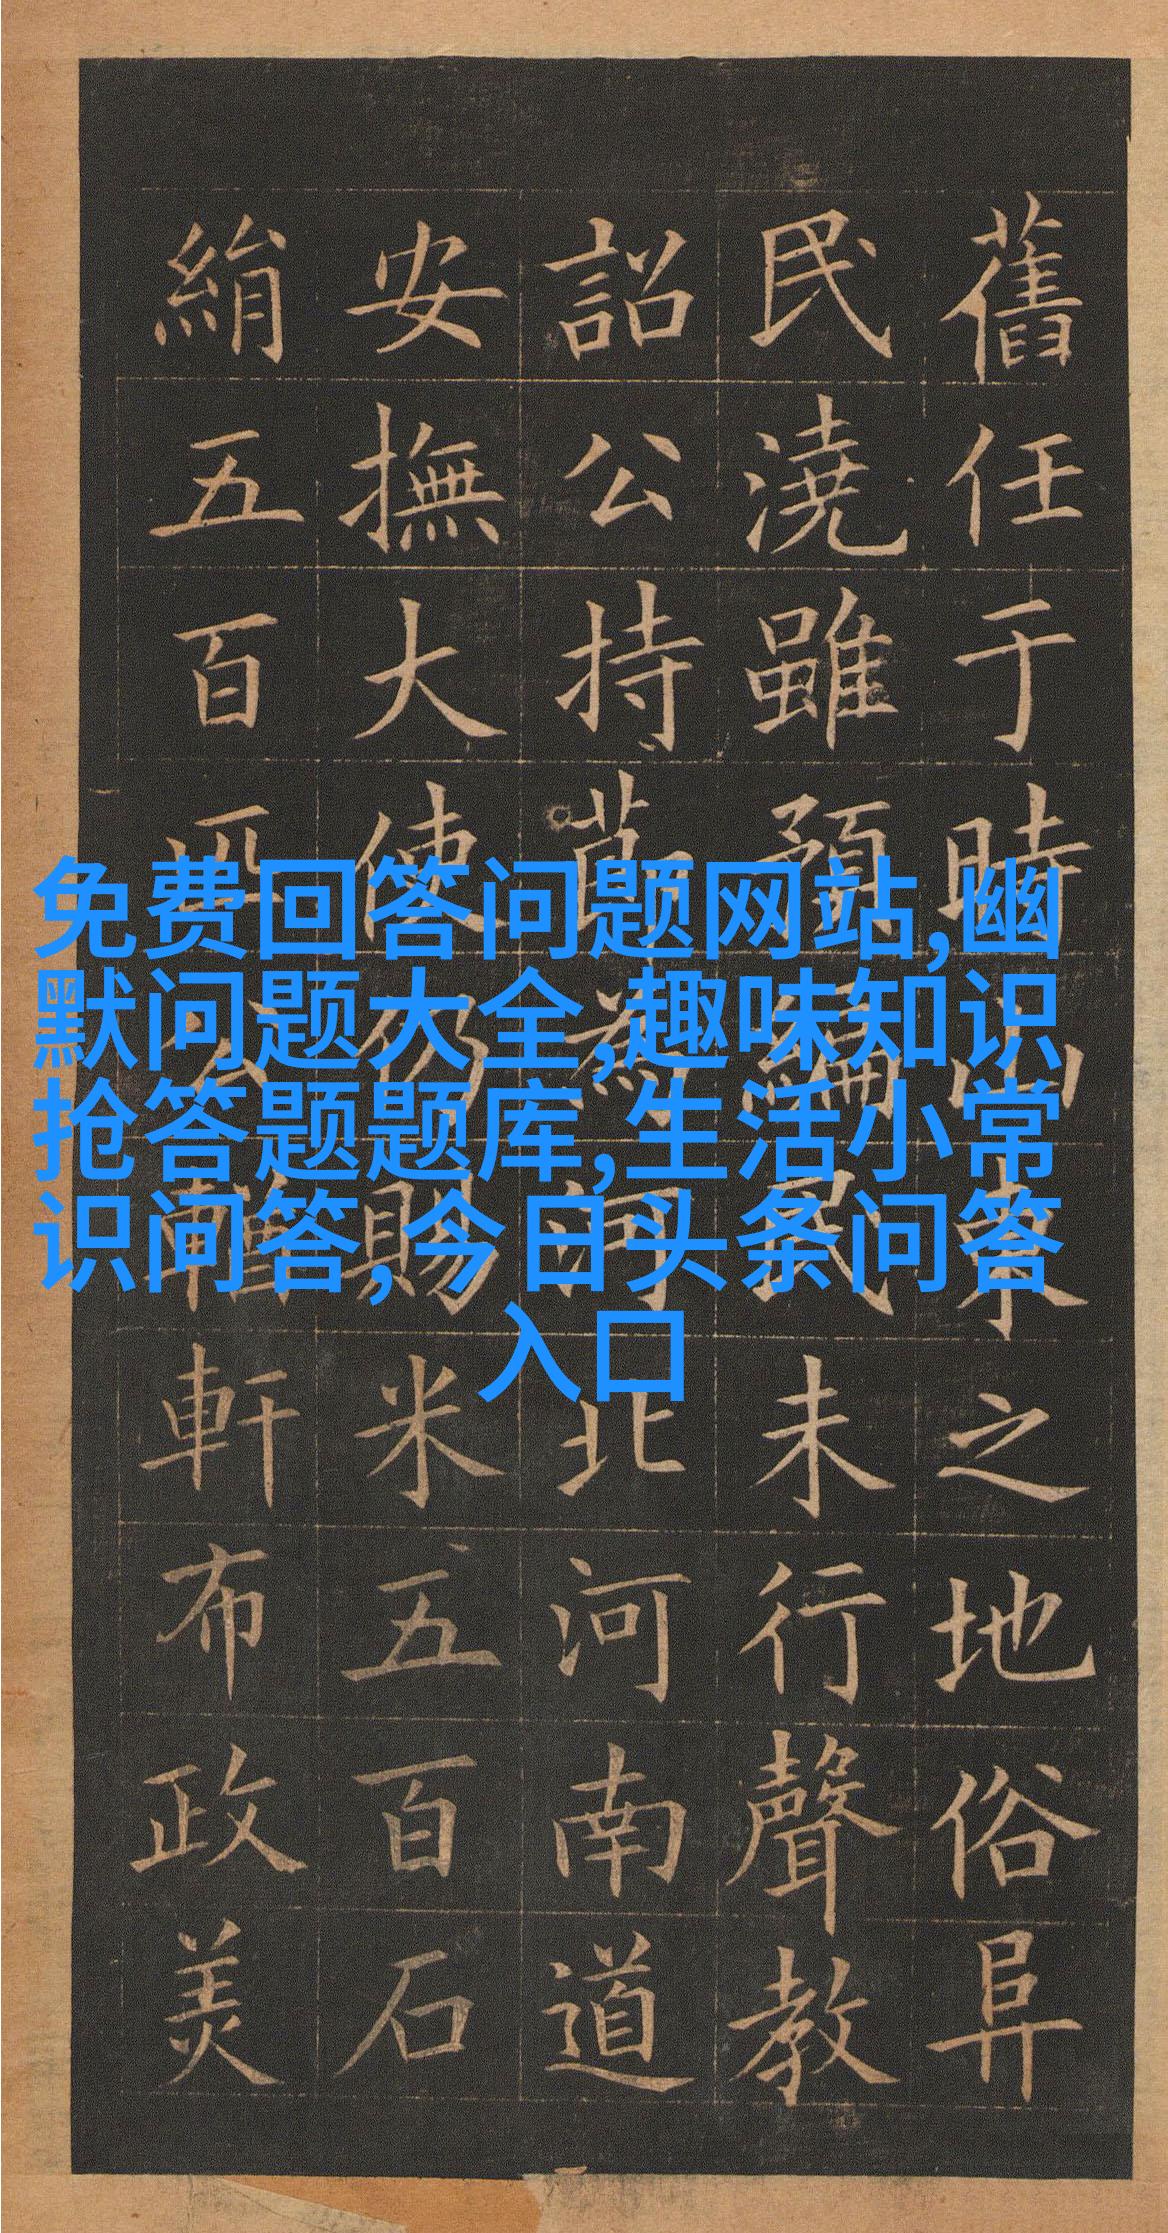 舊任于時山東之地俗阜
民澆雖預編民未行聲教
詔公持節為河北河南道
安撫大使仍賜米五百石
絹五百匹公輶軒布政美
免费回答问题网站,幽
默问题大全,趣味知识
抢答题题库,生活小常
识问答,今日头条问答
入口